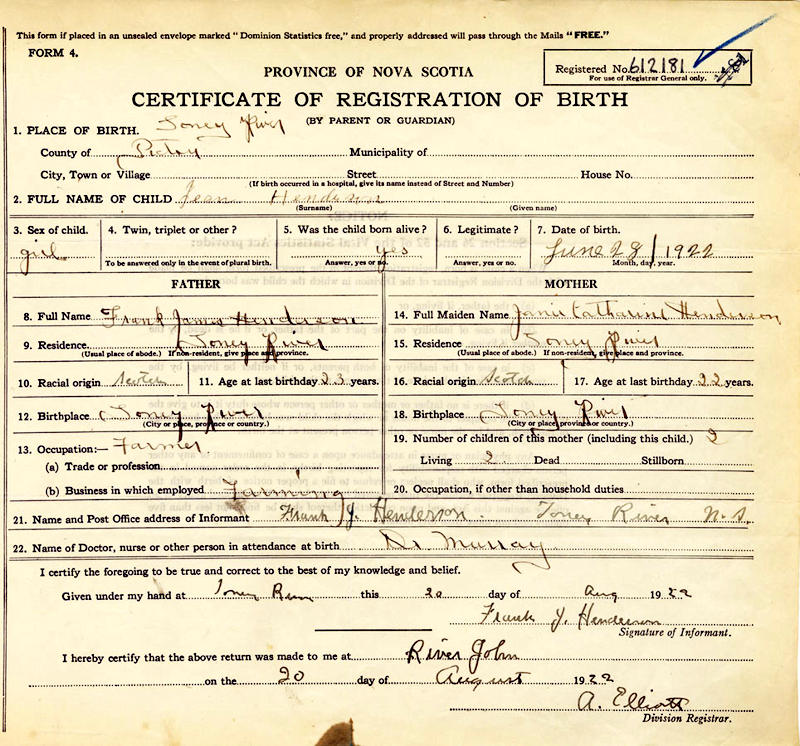 This form if placed in an unsealed envelope marked "Dominion Statistics free," and properly addressed will pass through the Mails "FREE."
FORM 4.
Registered No. 612181
For use of Registrar General only.
PROVINCE OF NOVA SCOTIA
CERTIFICATE OF REGISTRATION OF BIRTH
(BY PARENT OR GUARDIAN)
1. PLACE OF BIRTH. Toney River
County of Pictou Municipality of
City, Town or Village Street House No.
(If birth occurred in a hospital, give its name instead of Street and Number)
2. FULL NAME OF CHILD Jean Henderson
(Surname) (Given name)
3. Sex of child. 4. Twin, triplet or other? 5. Was the child born alive? 6. Legitimate? 7. Date of birth.
girl yes June 28/1922
To be answered only in the event of plural birth. Answer, yes or no. Answer, yes or no. Month, day, year.
FATHER MOTHER
8. Full Name Frank James Henderson 14. Full Maiden Name Janie Catharine Henderson
9. Residence. Toney River 15. Residence Toney River
(Usual place of abode.) If non-resident, give place and province. (Usual place of abode.) If non-resident, give place and province.
10. Racial origin Scotch 11. Age at last birthday 23 years. 16. Racial origin Scotch 17. Age at last birthday 22 years.
12. Birthplace Toney River 18. Birthplace Toney River
(City or place, province or country.) (City or place, province or country.)
13. Occupation:— Farmer 19. Number of children of this mother (including this child.) 2
(a) Trade or profession Living 2 Dead Stillborn
(b) Business in which employed Farming 20. Occupation, if other than household duties
21. Name and Post Office address of Informant Frank J. Henderson. Toney River N. S.
22. Name of Doctor, nurse or other person in attendance at birth Dr Murray
I certify the foregoing to be true and correct to the best of my knowledge and belief.
Given under my hand at Toney River this 20 day of Aug 1922
Frank J. Henderson
Signature of Informant.
I hereby certify that the above return was made to me at River John
on the 20 day of August 1922
A. Elliott
Division Registrar.